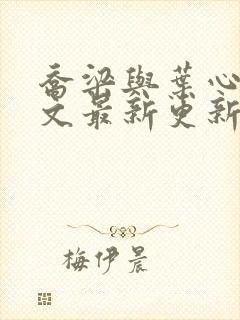 喬梁與葉心
文最新更新
梅伊晨